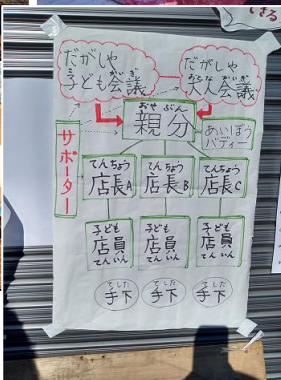 だがしや
かいぎ
子ども会議
だがしや
おとな かいぎ
大人会議
おやぶん
親分
あいぼう
バディー
サポーター
てんちょう
店長A
てんちょう
店長B
てんちょう
店長C
子ども
店員
てんいん
子ども
店員
てんいん
子ども
店員
てんいん
てした
手下
てした
手下
てした
手下